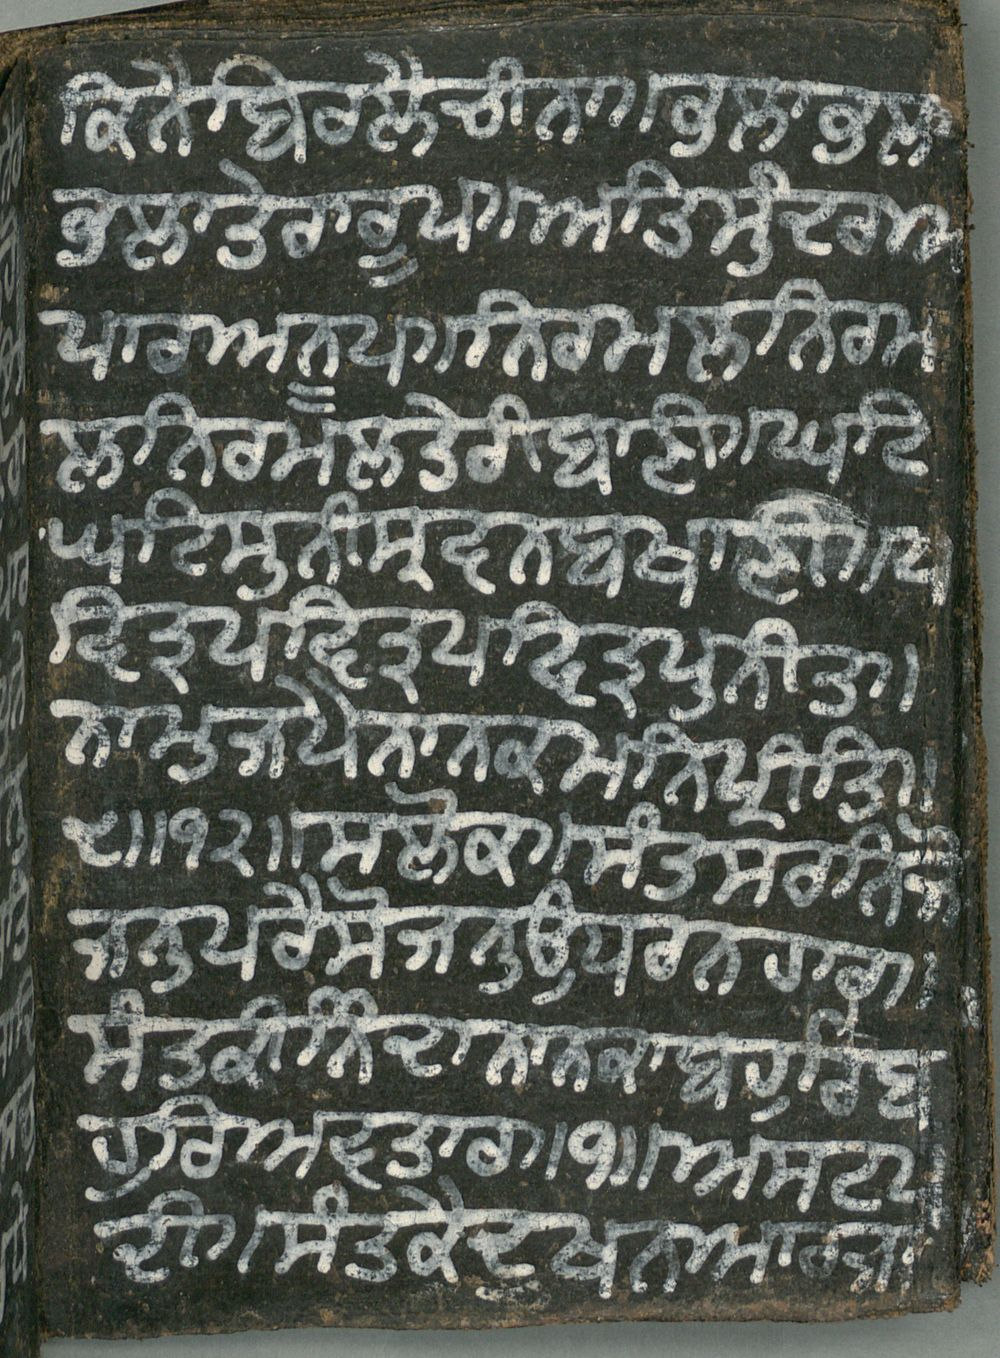 ਕਿਨੈ ਬਿਰਲੈ ਚੀਨਾ॥ ਭਲਾ ਭਲ
ਭਲਾ ਤੇਰਾ ਰੂਪ॥ ਅਤਿ ਸੁੰਦਰ ਅ
ਪਾਰ ਅਨੂਪ॥ ਨਿਰਮਲ ਨਿਰਮ
ਲ ਨਿਰਮਲ ਤੇਰੀ ਬਾਣੀ॥ ਘਟਿ
ਘਟਿ ਸੁਨੀ ਸ੍ਰਵਨ ਬਖਾਣੀ॥ ਪ
ਵਿਤ੍ਰ ਪਵਿਤ੍ਰ ਪਵਿਤ੍ਰ ਪੁਨੀਤ॥
ਨਾਮੁ ਜਪੈ ਨਾਨਕ ਮਨਿ ਪ੍ਰੀਤਿ॥
੮॥੧੨॥ ਸਲੋਕ॥ ਸੰਤ ਸਰਨਿ ਜੋ
ਜਨੁ ਪਰੈ ਸੋ ਜਨੁ ਉਧਰਨਹਾਰ॥
ਸੰਤ ਕੀ ਨਿੰਦਾ ਨਾਨਕਾ ਬਹੁਰਿ ਬ
ਹੁਰਿ ਅਵਤਾਰ॥੧॥ ਅਸਟਪ
ਦੀ॥ ਸੰਤ ਕੈ ਦੂਖਨ ਆਰਜਾ